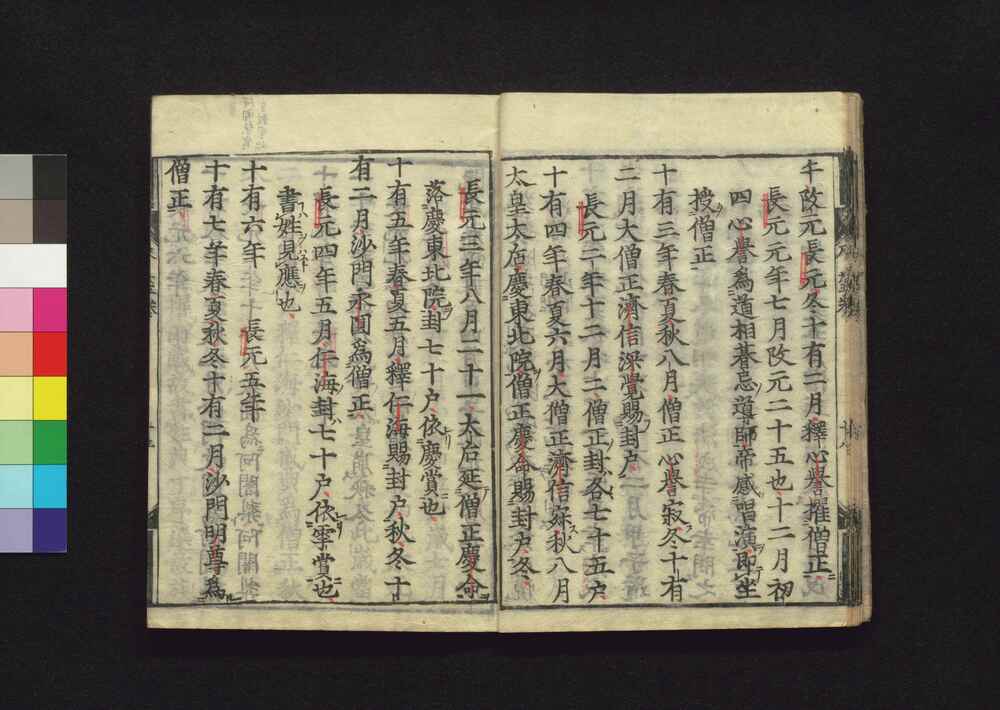 年改元長元冬十有二月釋心譽擢僧正
長元元年七月改元二十五也十二月初
四心譽爲道相養忌導師帝感唱演即坐
授僧正
十有三年春夏秋八月僧正心譽寂冬十有
二月大僧正濟信深覺賜封戸
長元二年十二月二僧正封各七十五戸
十有四年春夏六月大僧正濟信寂秋八月
太皇太后慶東北院僧正慶命賜封戸冬
長元三年八月二十一太后延僧正慶命
落慶東北院封七十戸依慶賞也
十有五年春夏五月釋仁海賜封戸秋冬十
有二月沙門永圓爲僧正
長元四年五月仁海封七十戸依霊賞也
書姓見應也
十有六年
長元五年
十有七年春夏秋冬十有二月沙門明尊爲
僧正